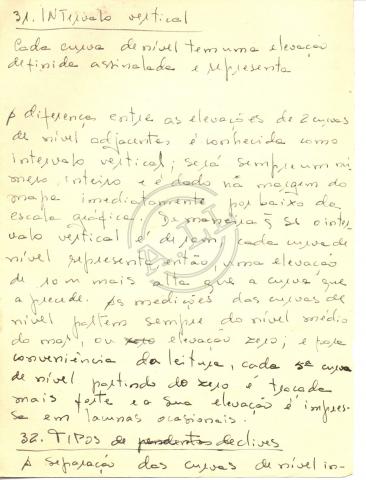 31. INtervalo vertical
Cada curva de nível tem uma elevação
definida assinalada e representa
A diferença entre as elevações de 2 curvas
de nível adjacentes é conhecida como
intervalo vertical; será sempre um nú-
mero inteiro e é dado na margem do
mapa imediatamente por baixo da
escala gráfica. De maneira q se o inter-
valo vertical é de 10m, cada curva de
nível representa então, uma elevação
de 10m mais alta que a curva que
a precede. As medições das curvas de
nível partem sempre do nível médio
do mar, ou zero elevação zero; e para
conveniência da leitura, cada 5ª curva
de nível partindo do zero é traçada
mais forte e a sua elevação é impres-
sa em lacunas ocasionais.
32. TIPOS de pendentes declives
A separação das curvas de nível in-